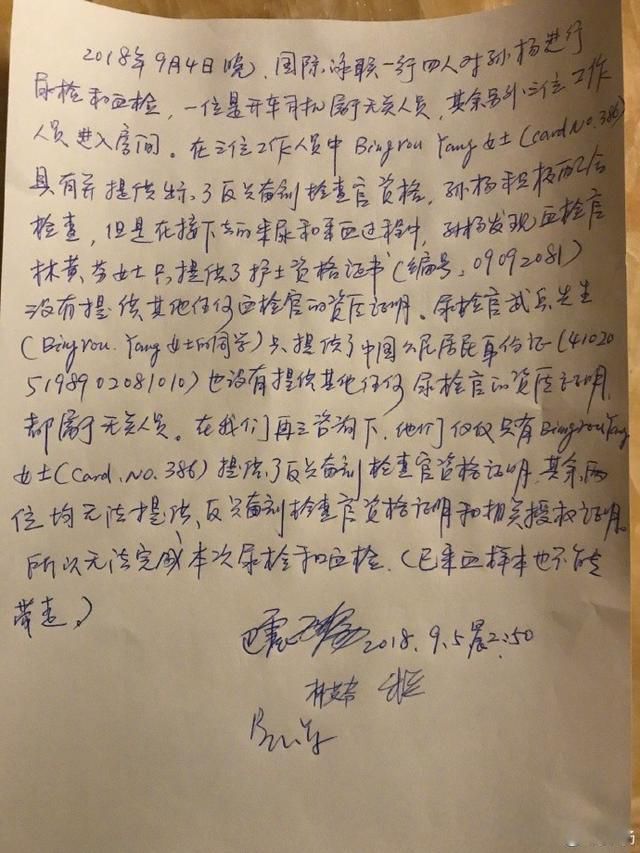 2018年9月4日晚,国际泳联一行四人对孙杨进行
尿检和血检,一位是开车司机属于无关人员,其余另外三位工作
人员进入房间。在三位工作人员中 Bingrou Yang 女士(Card No. 386)
具有并提供出示了反兴奋剂检查官资格,孙杨积极配合
检查,但是在接下去的采尿和采血过程中,孙杨发现血检官
林黄芬女士只提供了护士资格证书(编号:09092081)
没有提供其他任何血检官的资质证明。尿检官武兵先生
(Bingrou.Yang女士的同学)只提供了中国公民居民身份证(410205198902081010)也没有提供其他任何尿检官的资质证明,
都属于无关人员。在我们再三咨询下,他们仅仅只有Bingrou Yang
女士(Card.No.386)提供了反兴奋剂检查官资格证明,其余两
位均无法提供反兴奋剂检查官资格证明和相关授权证明。
所以无法完成本次尿检和血检.(已采血样本也不能
带走。)
2018.9.5晨2:50